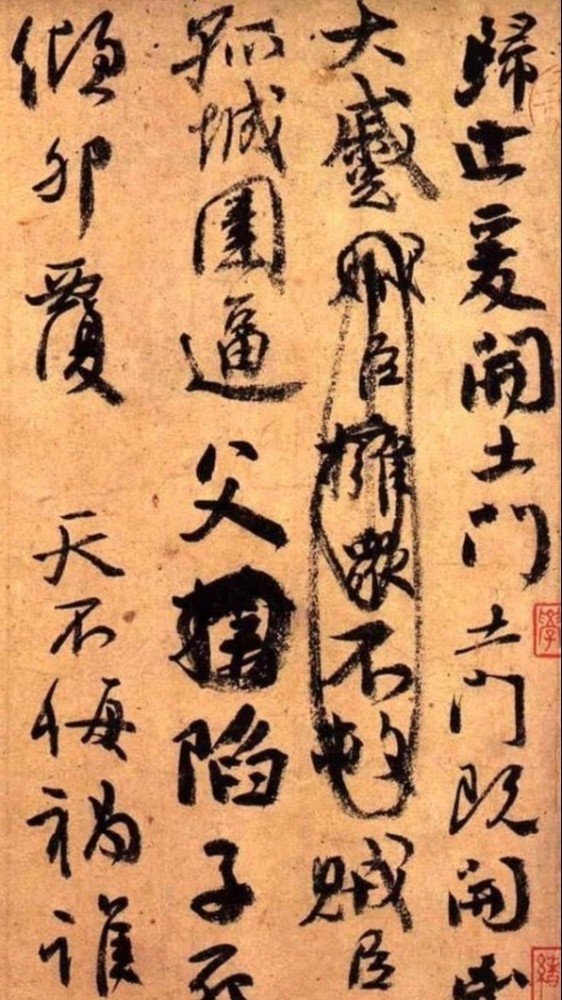 歸止爰開土門土門既開凶
大蹙賊臣擁衆不救賊臣
孤城圍逼父陷子死
傾卵覆 天不悔禍誰